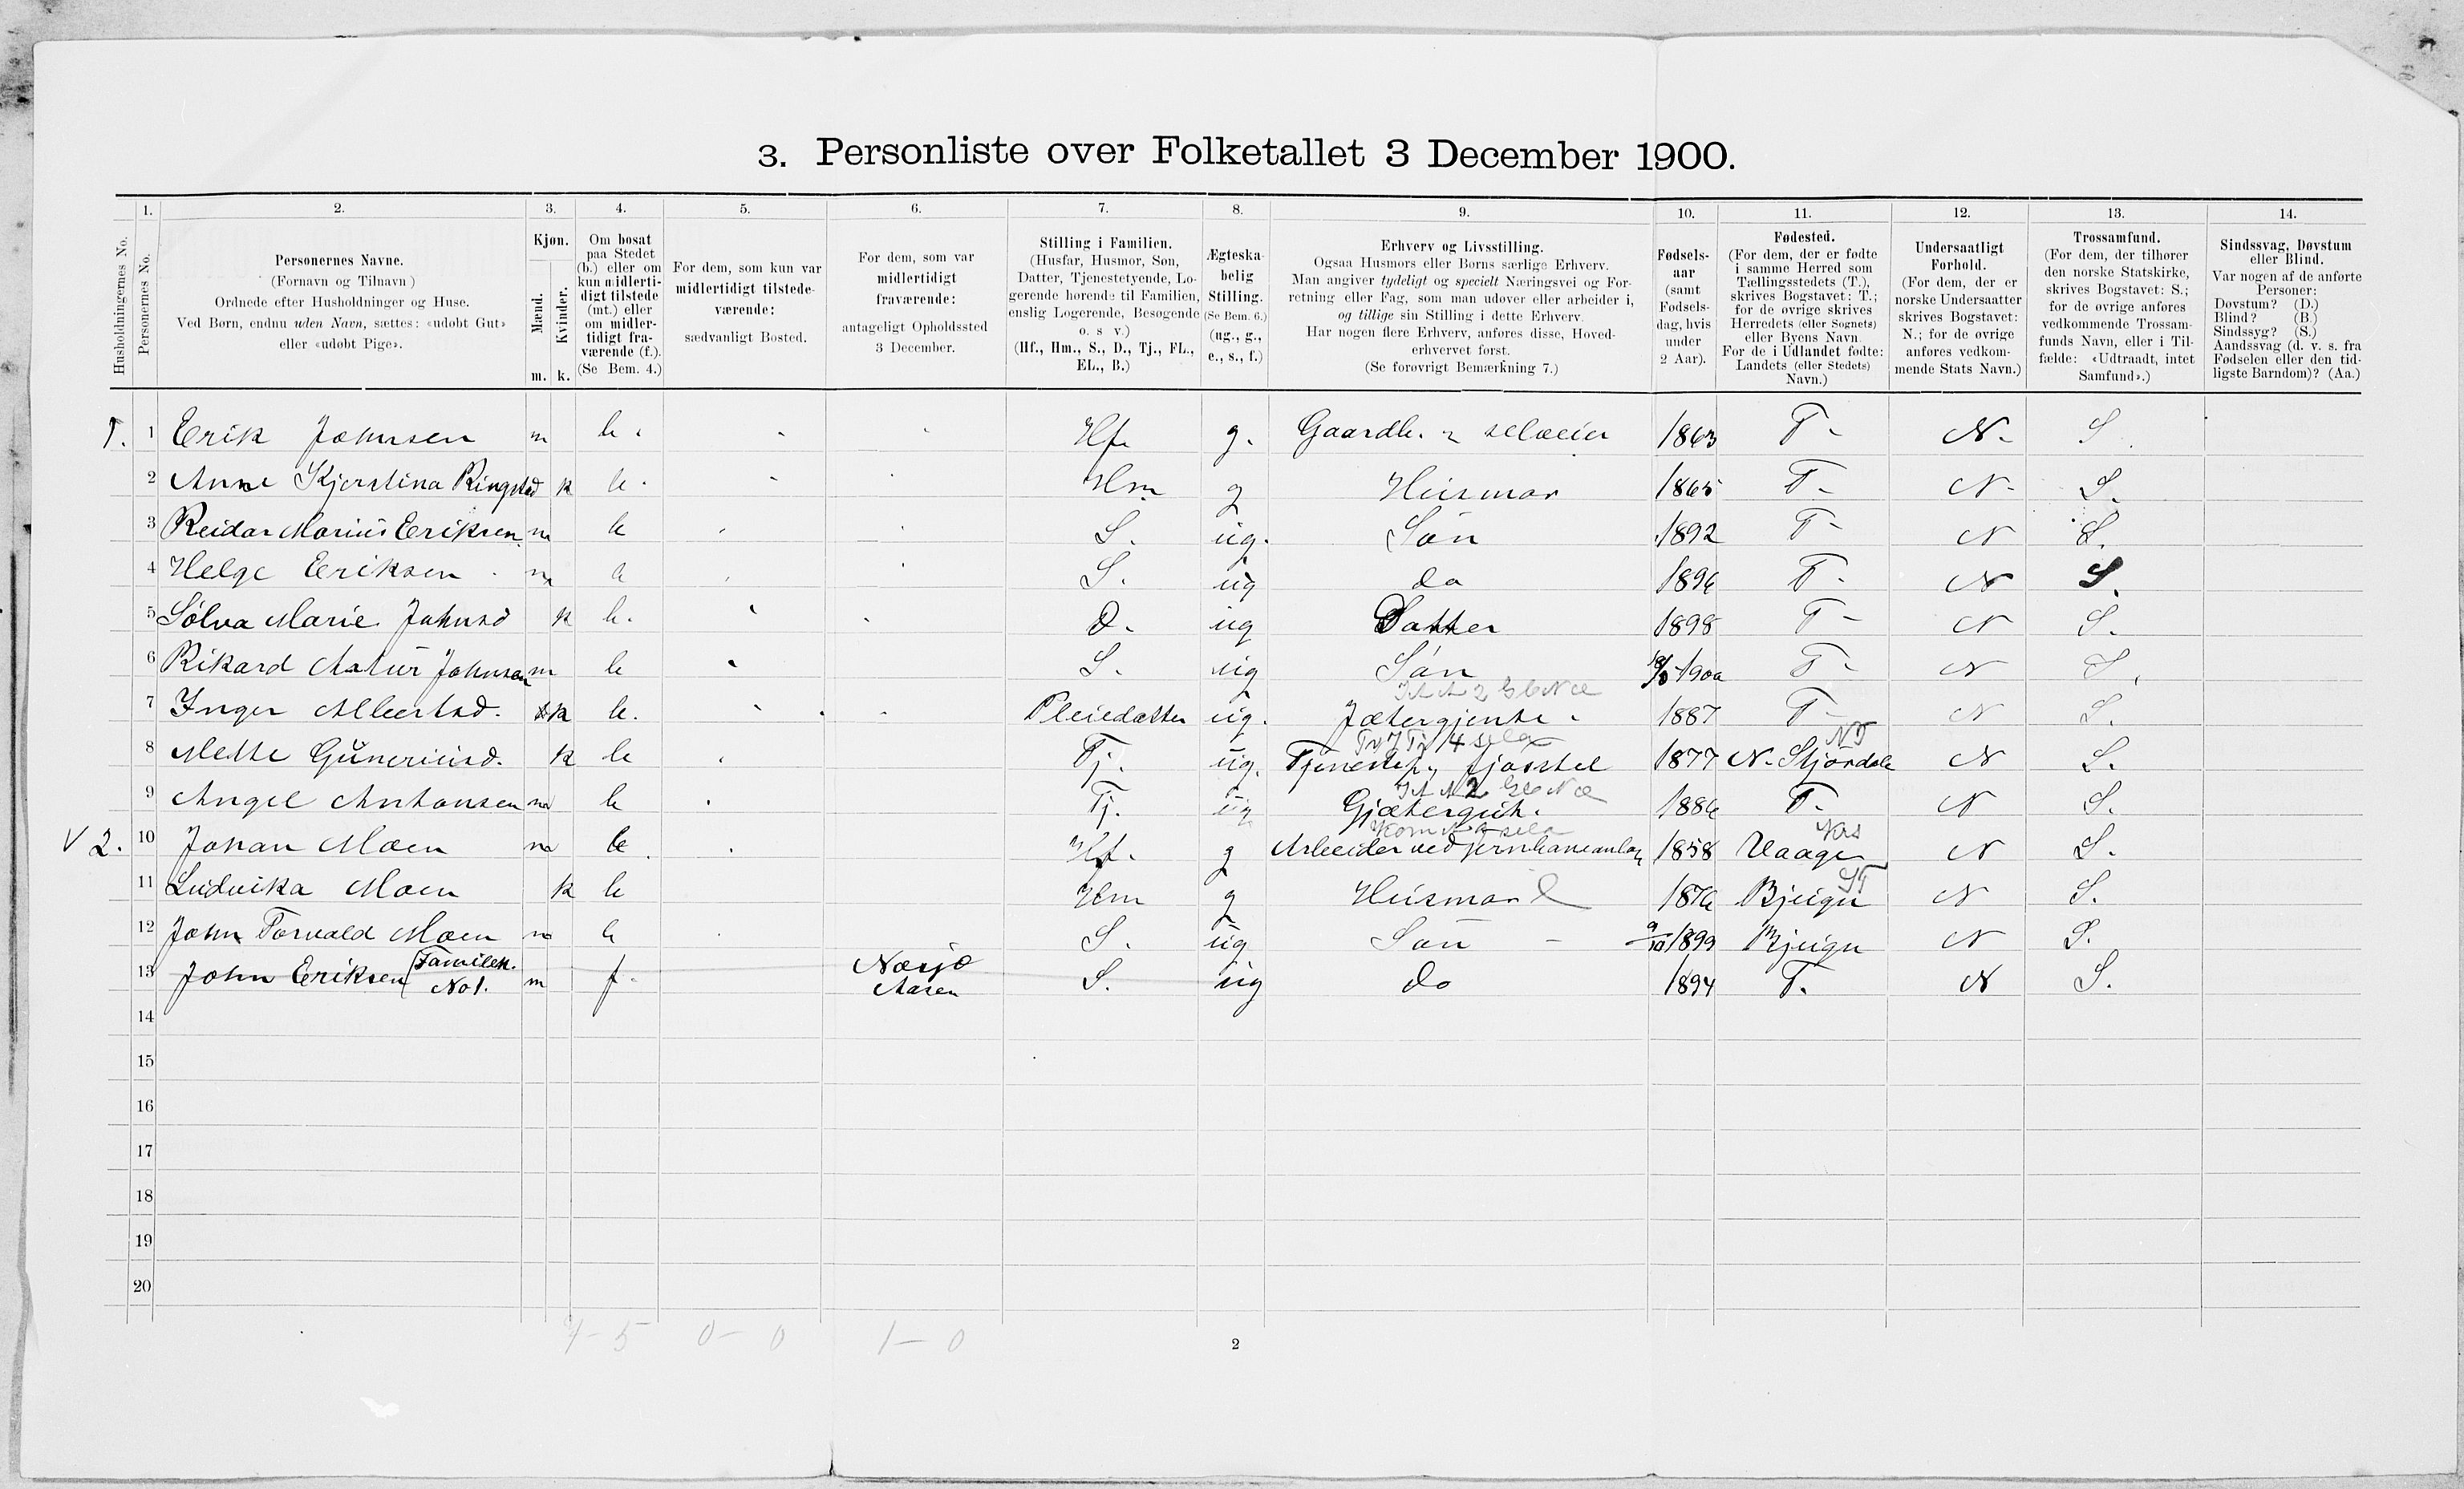 3. Personliste over Folketallet 3 December 1900.
1. 2. 3. 4. 5. 6. 7. 8. 9. 10. 11. 12. 13. 14.
Husholdningernes No.
Personernes No.
Personernes Navne.
(Fornavn og Tilnavn)
Ordnede efter Husholdninger og Huse.
Ved Børn, endnu uden Navn, sættes: «udøbt Gut»
eller «udøbt Pige».
Kjøn.
Mænd.
Kvinder.
m. k.
Om bosat
paa Stedet
(b.) eller om
kun midlerti-
digt tilstede
(mt.) eller
om midler-
tidigt fra-
værende (f.).
(Se Bem. 4.)
For dem, som kun var
midlertidigt tilstede-
værende:
sædvanligt Bosted.
For dem, som var
midlertidigt
fraværende:
antageligt Opholdssted
3 December.
Stilling i Familien.
(Husfar, Husmor, Søn,
Datter, Tjenestetyende, Lo-
gerende hørende til Familien,
enslig Logerende, Besøgende
o. s v.)
(Hf., Hm., S., D., Tj., FL.,
EL., B.)
Ægteska-
belig
Stilling.
(Se Bem. 6.)
(ug., g.,
e., s., f.)
Erhverv og Livsstilling.
Ogsaa Husmors eller Børns særlige Erhverv.
Man angiver tydeligt og specielt Næringsvei og For-
retning eller Fag, som man udøver eller arbeider i,
og tillige sin Stilling i dette Erhverv.
Har nogen flere Erhverv, anføres disse, Hoved-
erhvervet først.
(Se forøvrigt Bemærkning 7.)
Fødsels-
aar
(samt
Fødsels-
dag, hvis
under
2 Aar).
Fødested.
(For dem, der er fødte
i samme Herred som
Tællingsstedets (T.),
skrives Bogstavet: T.;
for de øvrige skrives
Herredets (eller Sognets)
eller Byens Navn.
For de i Udlandet fødte:
Landets (eller Stedets)
Navn.)
Undersaatligt
Forhold.
(For dem, der er
norske Undersaatter
skrives Bogstavet:
N.; for de øvrige
anføres vedkom-
mende Stats Navn.)
Trossamfund.
(For dem, der tilhører
den norske Statskirke,
skrives Bogstavet: S.;
for de øvrige anføres
vedkommende Trossam-
funds Navn, eller i Til-
fælde: «Udtraadt, intet
Samfund».)
Sindssvag, Døvstum
eller Blind.
Var nogen af de anførte
Personer:
Døvstum? (D.)
Blind? (B.)
Sindssyg? (S.)
Aandssvag (d. v. s. fra
Fødselen eller den tid-
ligste Barndom)? (Aa.)
1 Erik Johnsen m b. Hf. g. Gaardb. selveier 1863 T. N. S
2 Anne Kjerstina Ringstad k b. Hm g Husmor 1865 T. N. S.
3 Reidar Marius Eriksen m b S. ug. Søn 1892 T N S.
4 Helge Eriksen m b S. ug do 1896 T. N S.
5 Sølva Marie Johnsd k b. D. ug Datter 1898 T N S.
6 Rikard Johnsen m b S. ug Søn 1900 T N S.
7 Inger Albertsd. k b. Pleiedatter ug. Jætergjente 1887 T N S.
NT
8 Mette Guneriusd. k b Tj. ug. fjøsstel 1877 N. Stjørdale N S.
9 Angel Antonsen m b Tj. ug Gjætergut. 1886 T. N S.
Krs
V 2. 10 Johan Moen m b. Hf. g Arbeider ved jernbaneanlæg 1858 Vaage N S.
ST
11 Ludvika Moen k b Hm g Husmor 1876 Bjugn N S.
12 John Torvald Moen m b S. ug Søn 9/10 1899 Bjugn N S.
13 John Eriksen (Familien. No 1. m f. Aasen S. ug do 1894 T. N S.
14
15
16
17
18
19
20
7-5 0-0 1-0
2